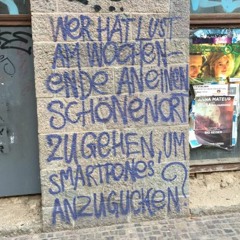 WER HAT LUST
AM WOCHEN-
ENDE AN EINEN
SCHÖNEN ORT
ZU GEHEN, UM
SMARTPONES
ANZUGUCKEN?